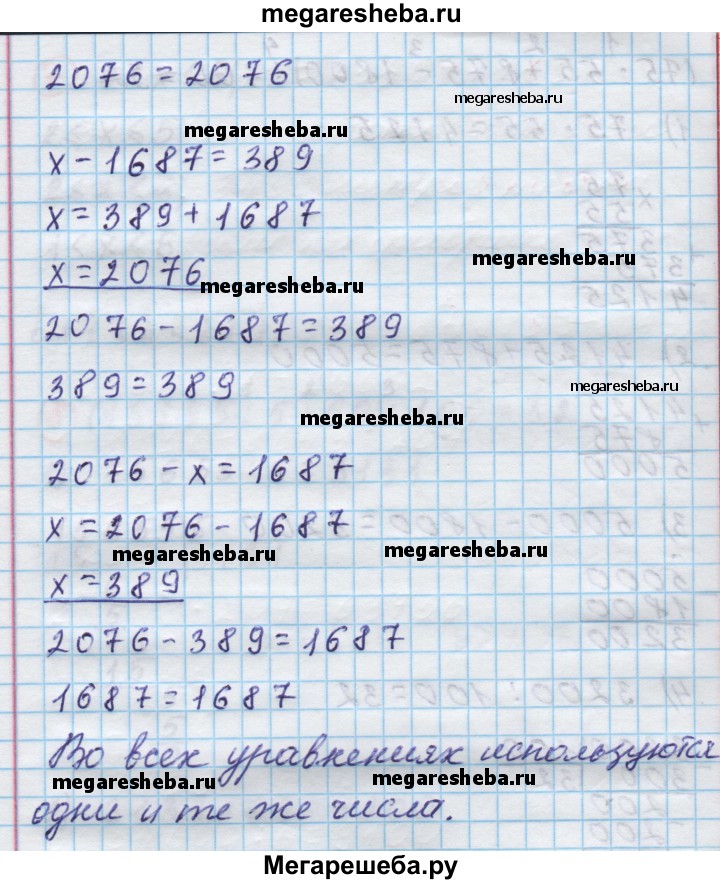 megaresheba.ru
2076 = 2076
megaresheba.ru
megaresheba.ru
x - 1687 = 389
x = 389 + 1687
megaresheba.ru
x = 2076
megaresheba.ru
2076 - 1687 = 389
389 = 389
megaresheba.ru
megaresheba.ru
2076 - x = 1687
x = 2076 - 1687
megaresheba.ru
megaresheba.ru
x = 389
2076 - 389 = 1687
1687 = 1687
Во всех уравнениях используются
megaresheba.ru
megaresheba.ru
одни и те же числа.
Мегарешеба.ру